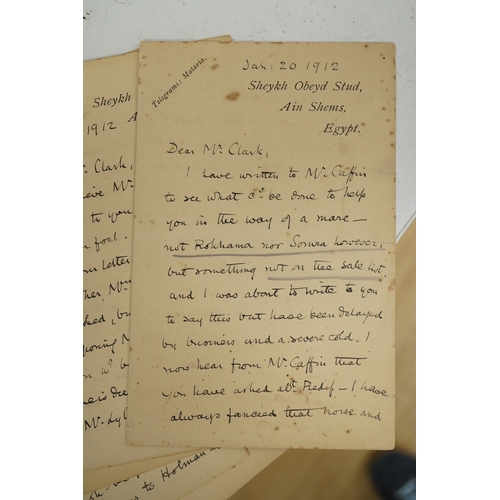 Jan: 20 1912
Telegrams: Mataria.
Sheykh Obeyd Stud,
Ain Shems,
Egypt.
Dear Mr. Clark,
I have written to Mr. Caffin
to see what cd. be done to help
you in the way of a mare —
not Rokhama nor Somra however,
but something not on the sale list.
and I was about to write to you
to say this but have been delayed
by business and a severe cold. I
now hear from Mr. Caffin that
you have asked abt. Redif — I have
always fancied that horse and
Sheykh
1912 A
Clark,
Mr.
to you
foal.
letter
her, Mr.
Mr. Lyl
to Holman